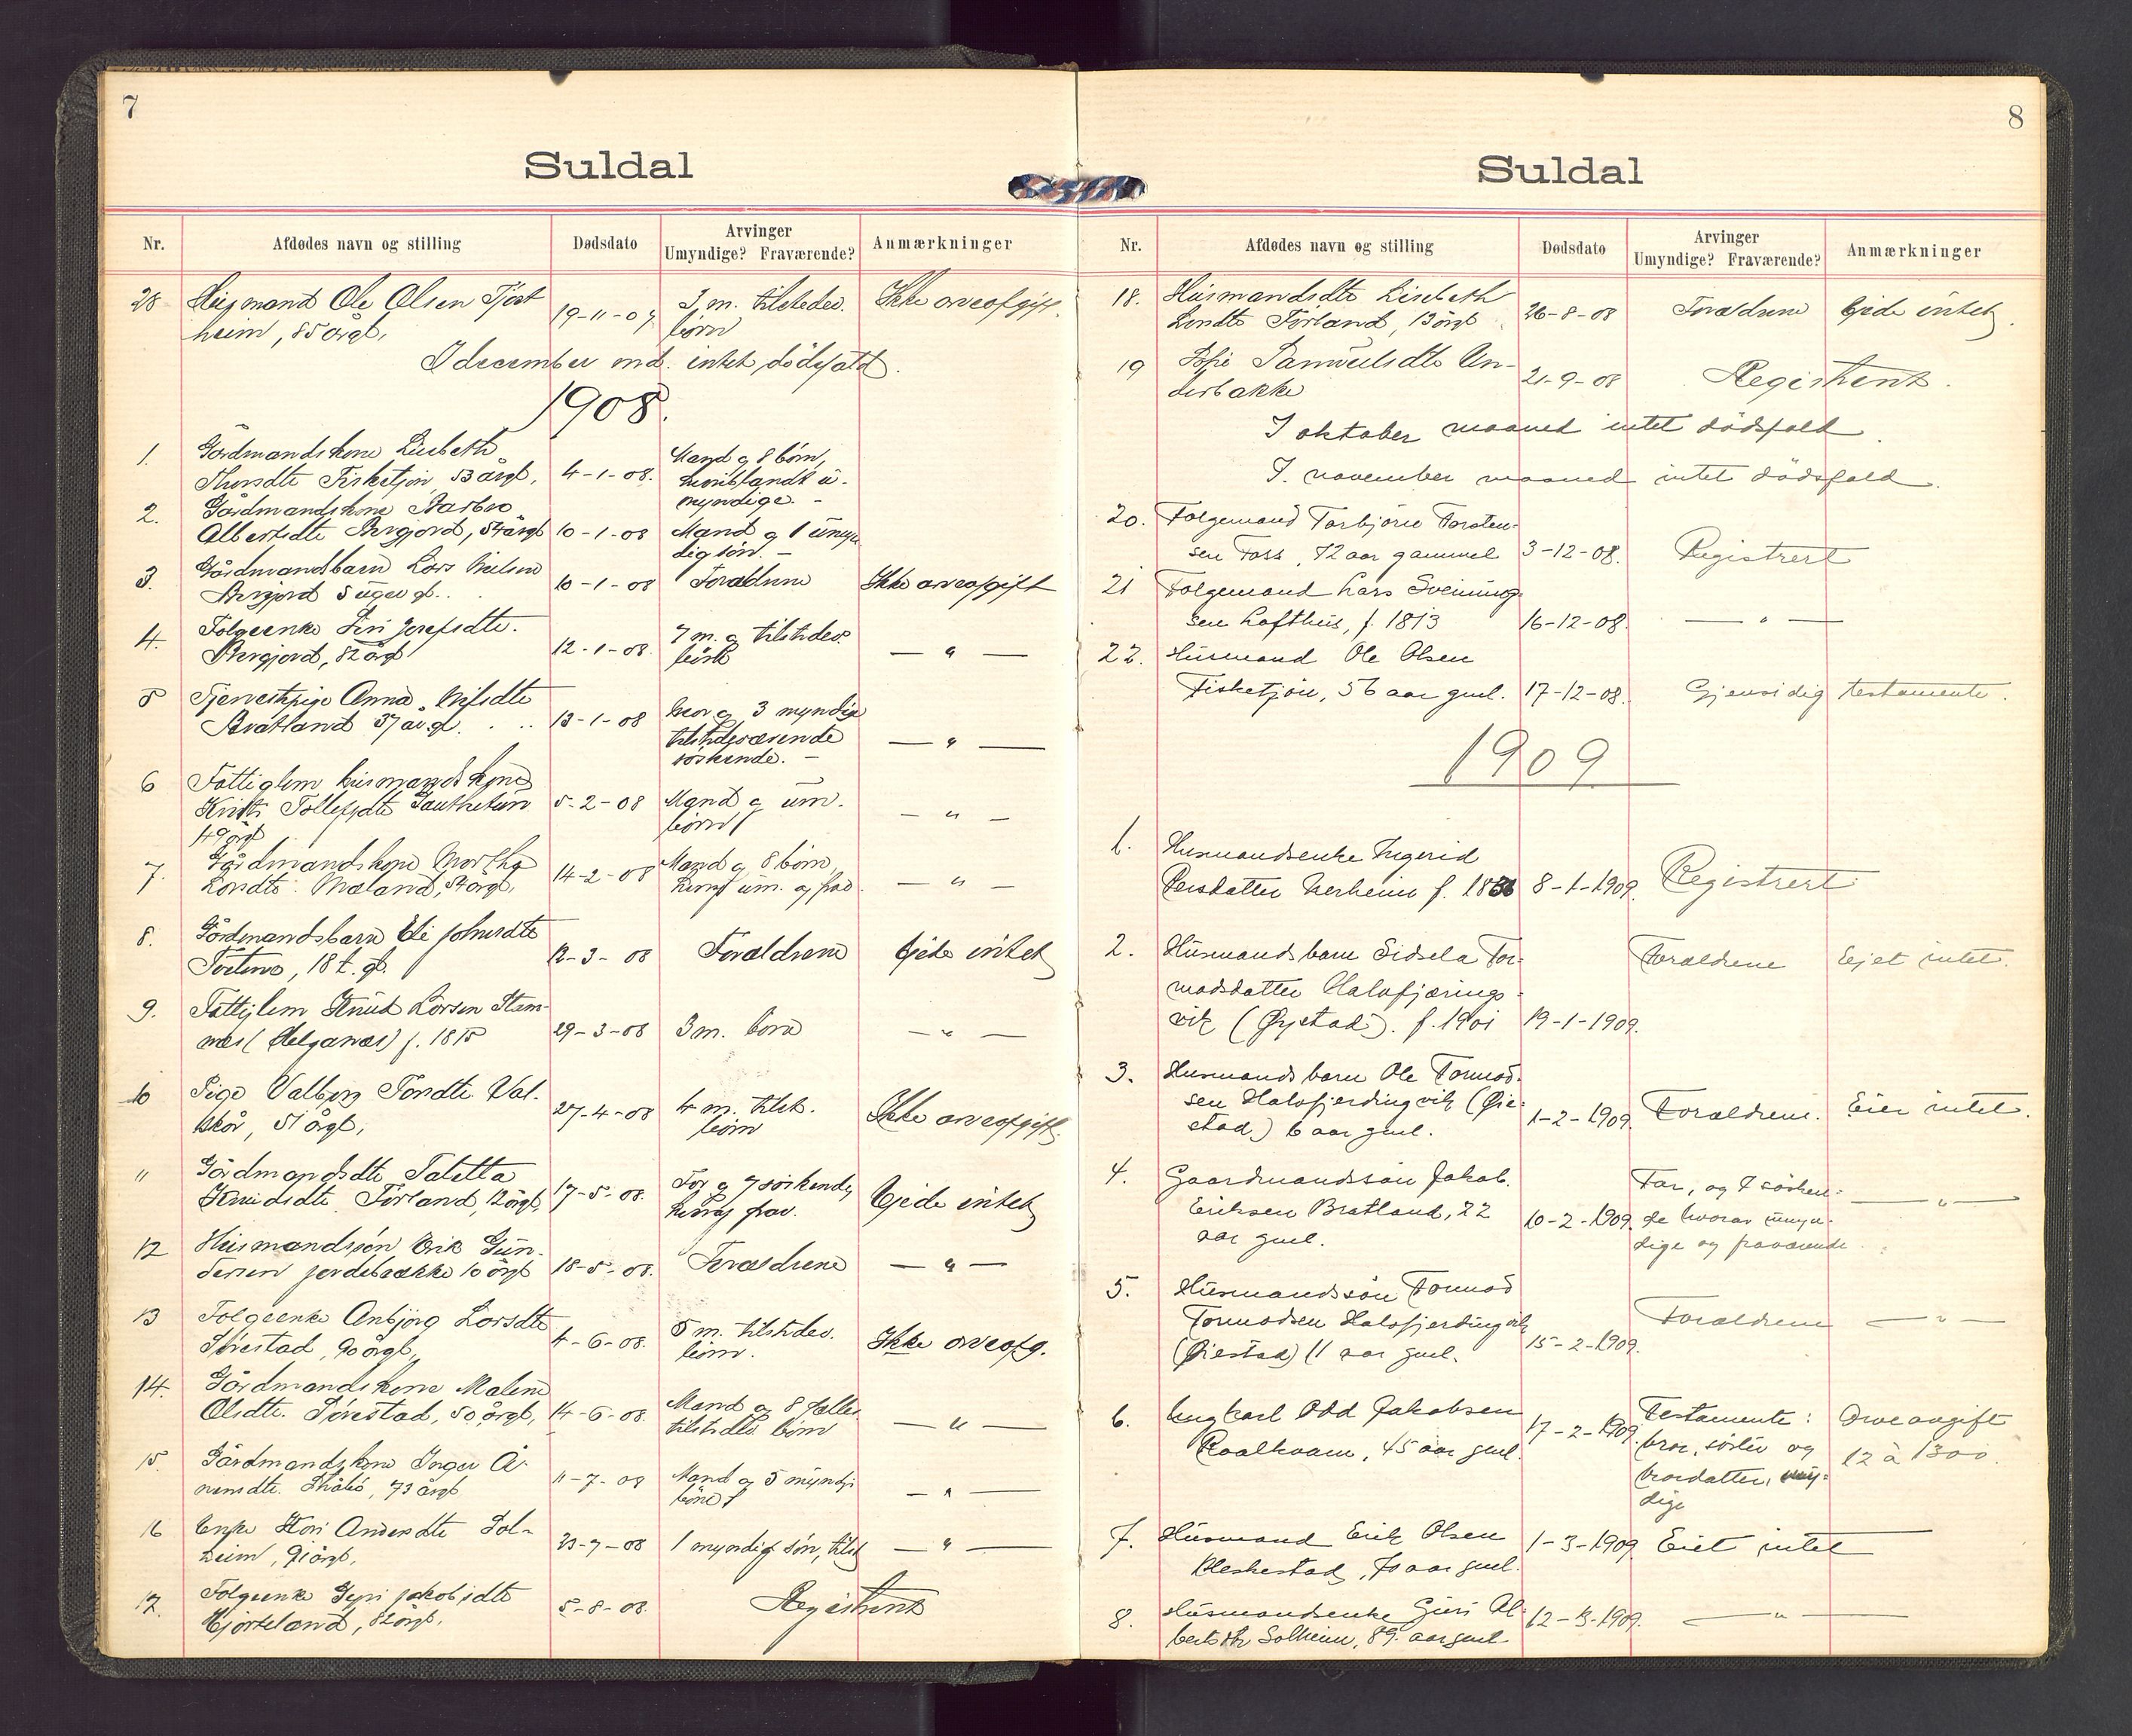 7
Suldal
Nr. Afdødes navn og stilling Dødsdato Arvinger Umyndige? Fraværende? Anmærkninger
28 Husmand Ole Olsen Tjøst
heim, 85 årgl, 19-11-07 3 m. tilstedev. børn Ikke arveafgift.
I december md. intet dödsfald.
1908.
1. Gårdmandskone Lisbeth
Thorsdtr Fisketjøn, 53 årgl, 4-1-08. Mand og 8 børn, hvoriblandt umyndige. -
2. Gårdmandskone Barbro
Albertsdtr Bergjord, 54 årgl 10-1-08 Mand og 1 umyndig søn. -
3. Gårdmandsbarn Lars Nilsen
Bergjord 5 uger gl. 10-1-08 Forældrene Ikke arveafgift
4. Folgeenke Siri Josefsdtr.
Bergjord, 82 årgl 12-1-08. 7 m. og tilstedev. børn — " —
5 Tjenestepige Anna Nilsdtr
Bratland 37 år gl. 13-1-08 Mor og 3 myndige tilstedeværende søskende. - — " —
6 Fattiglem husmandskone
Kristi Tollefsdtr Gauthetun
49 årgl 5-2-08 Mand og um. børn — " —
7. Gårdmandskone Martha
Larsdtr. Mæland, 54 årgl, 14-2-08 Mand og 8 børn, hvoraf um. og frav. — " —
8. Gårdmandsbarn Eli Johnsdtr
, 18 t. gl. 12-3-08 Forældrene Eiede intet
9. Fattiglem Knud Larsen Stamnes
(Helganæs) f. 1815 29-3-08 3 m. børn — " —
10 Pige Valborg Tordtr. Valskår,
51 årgl, 27-4-08 4 m. tilst. børn Ikke arveafgift.
11 Gårdmandsdtr Taletta
Knudsdtr Førland, 12 årgl, 17-5-08. Far og 7 søskende, hvoraf frav. Eiede intet
12 Husmandssøn Erik Gundersen
Jordebrække 10 årgl 18-5-08. Forældrene — " —
13 Folgeenke Anbjørg Larsdtr
Sørestad, 90 årgl, 4-6-08. 5 m. tilstedev. børn. Ikke arveafg.
14. Gårdmandskone Malene
Olsdtr. Sørestad, 50 årgl, 14-6-08. Mand og 8 fælles tilstedev. børn — " —
15 Gårdmandskone Inger
, 73 årgl 11-7-08 Mand og 5 myndige børn — " —
16 Enke Kari Andersdtr Solheim,
91 årgl, 23-7-08 1 myndig søn, tilst — " —
17. Folgeenke Jakobsdtr
Hjorteland, 82 årgl, 5-8-08. Registrert
8
Suldal
Nr. Afdødes navn og stilling Dødsdato Arvinger Umyndige? Fraværende? Anmærkninger
18. Husmandsdtr Lisebeth
Førland, 13 årgl 26-8-08 Forældrene Eiede intet.
19 Samuelsdtr Underbakke 21-9-08 Registrert.
I oktober maaned intet dödsfald.
I november maaned intet dödsfald.
20. Folgemand Torbjørn Torsten-
sen Foss, 72 aar gammel 3-12-08. Registrert
21 Folgemand Lars Sveinung-
sen Lofthus, f. 1813 16-12-08. — " —
22. Husmand Ole Olsen
Fisketjön, 56 aar gml. 17-12-08. Gjensidig testamente.
1909
1. Husmandsenke Ingerid
Persdatter Nerheim f. 1836 8-1-1909. Registrert
2. Husmandsbarn Sidsela Tor-
modsdatter Halvfjærings-
vik (Øystad). f. 1901 19-1-1909. Forældrene Eiet intet.
3. Husmandsbarn Ole Tormod-
sen Halvfjerdingvik (Øie-
stad) 6 aar gml. 1-2-1909. Forældrene. Eier intet.
4. Gaardmandssøn Jakob
Eriksen Bratland, 22
aar gml. 10-2-1909. Far, og 7 søsken-
de hvorav umyn-
dige og fraværende — " —
5. Husmandssøn Tormod
Tormodsen Halvfjerdingvik
(Øiestad) 11 aar gml. 15-2-1909. Forældrene — " —
6. Ungkarl Odd Jakobsen
Roalkvam, 45 aar gml. 17-2-1909. Testamente:
bror, söster og
brordatter, myn-
dige Arveavgift
12 à 1300.
7. Husmand Erik Olsen
Bleskestad, 70 aar gml. 1-3-1909. Eiet intet
8. Husmandsenke Guri Al-
bertsdtr Solheim, 89 aar gml 12-3-1909. — " —